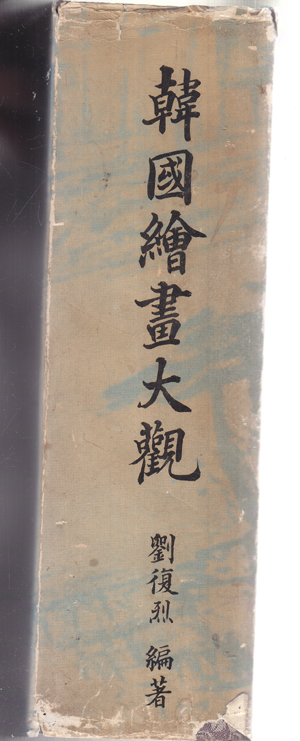 韓國繪畫大觀
劉復烈 編著